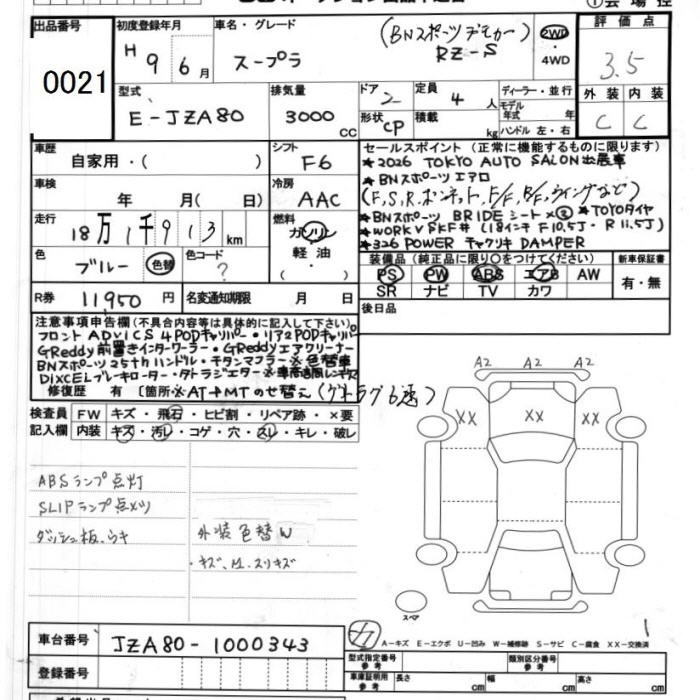 出品番号
0021
初度登録年月
H 9 6月
車名・グレード
スープラ
(BNスポーツデモカー)
RZ-S
2WD
・
4WD
評価点
3.5
外装 内装
C C
型式
E-JZA80
排気量
3000 cc
ドア 2
形状 CP
定員 4人
積載 kg
ディーラー・並行
モデル
年式 年
ハンドル 左・右
車歴
自家用・( )
シフト
F6
車検
年 月( 日)
冷房
AAC
走行
18万1千913km
燃料
ガソリン
軽油
・
色
ブルー 色替
色コード
?
R券
11950円
名変通知期限 月 日
セールスポイント(正常に機能するものに限ります)
★2026 TOKYO AUTO SALON出展車
★BNスポーツエアロ
(F,S,R,ボンネット,F/F,B/F,ウイングなど)
★BNスポーツ BRIDE シート×② ★TOYOタイヤ
★WORK VSKF# (18インチ F10.5J・R11.5J)
★326 POWER チャクリキ DAMPER
装備品(純正品に限り○をつけてください)
PS PW ABS エアB AW
SR ナビ TV カワ
新車保証書
有・無
後日品
注意事項申告欄(不具合内容等は具体的に記入して下さい)
フロント ADVICS 4PODキャリパー・リア2PODキャリパー
GReddy前置きインタークーラー・GReddyエアクリーナー
BNスポーツ25thハンドル・チタンマフラー※色替車
DIXCELブレーキローター・タトラジエター※車高過同レキズ
修復歴 有 〔箇所※AT→MTのせ替え(ゲトラグ6速)
検査員 FW キズ・飛石・ヒビ割・リペア跡・×要
記入欄 内装 キズ・汚レ・コゲ・穴・スレ・キレ・破レ
ABSランプ点灯
SLIPランプ点メツ
ダッシュ板、ウキ
外装色替W
・キズ、M、スリキズ
A2 A2 A2
XX XX XX
スペア
車台番号 JZA80-1000343
登録番号
A-キズ E-エクボ U-凹み W-補修跡 S-サビ C-腐食 XX-交換済
型式指定番号
参考
類別区分番号
参考
車庫証明用
参考
長さ cm 幅 cm 高さ cm